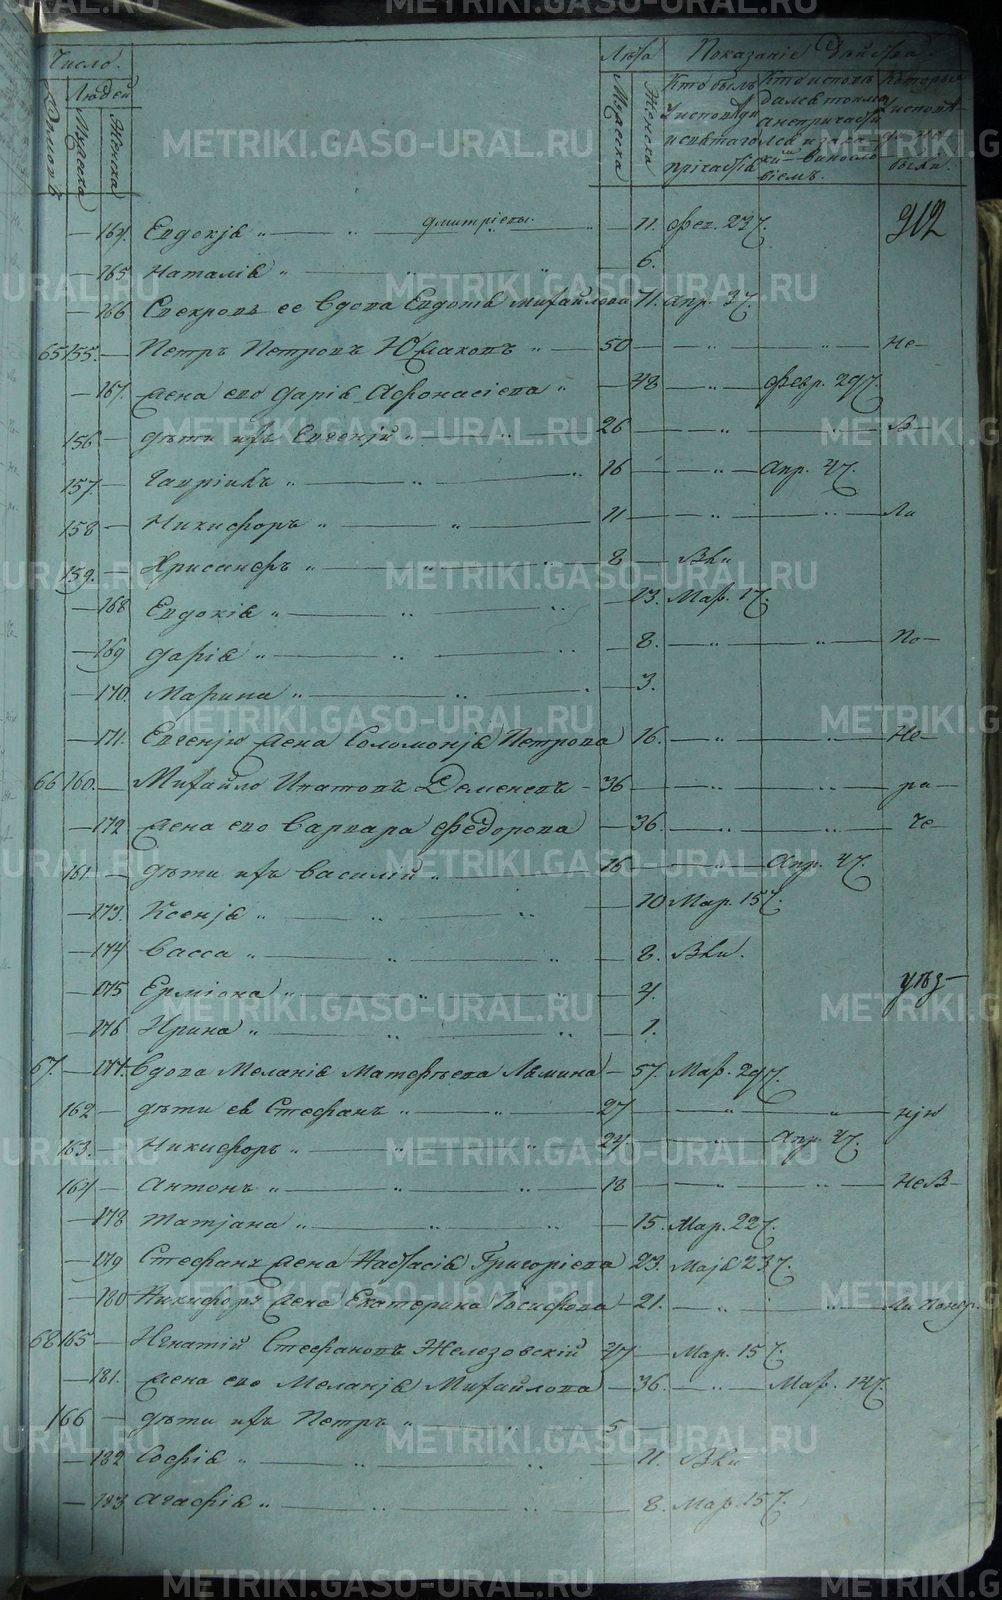 Число. Лѣта Показаніе Дѣйства
Людей
Дворовъ Мужеска Женска Мужеска Женска Кто былъ у исповѣди и святаго причастія Кто исповѣдался токмо а не причастился и за какимъ виносло віемъ. Которые у исповѣди не были.
912
164. Евдокіѣ „ — „ — Дмитріевы. „ — 11. Фев. 23 7.
165 Наталіѣ „ — „ — „ — 6.
166 Свекровь ее вдова Евдотѣ Михайлова 71. Апр. 3 7.
65 155. — Петръ Петровъ Юшковъ „ — 50 — „ — „ — Не —
167. жена его Даріѣ Афонасіева „ — 48 — „ — Февр. 29 7.
156 — дѣти ихъ Евгеній „ — „ — 26 — „ — „ — В —
157. — Гавріилъ „ — „ — „ — 16 — „ — Апр. 4 7.
158 — Никифоръ „ — „ — 11 — „ — „ — Ли
159. — Хрисанфъ „ — „ — „ — 8 — Вли
168 Евдокіѣ „ — „ — „ — 13. Мар. 1 7.
169 Даріѣ „ — „ — „ — 8. — „ — „ — По —
170. Марина „ — „ — „ — 3.
171. Евгенію жена Соломоніѣ Петрова 16. — „ — „ — Не —
66 160. — Михайло Ипатовъ Деменевъ — 36 — „ — „ — ра —
172 жена его Варвара Федорова — 36. — „ — „ — Че —
161 — дѣти ихъ Василій „ — 16 — „ — Апр. 4 7.
173. Ксеніѣ „ — „ — „ — 10 Мар. 15 7.
174 Васса „ — „ — „ — 8. Вли.
175 Ерміона „ — „ — „ — 4. уѣз —
176 Ирина „ — „ — „ — 1.
67. — 177. Вдова Меланіѣ Матѳѣева Лямина — 57. Мар. 29 7.
162 — дѣти еѣ Стефанъ „ — „ — 27 — „ — „ — нію
163. — Никифоръ „ — „ — „ — 24. — „ — Апр. 4 7.
164 — Антонъ „ — „ — „ — 18 — „ — „ — НеВ —
178 Татіана „ — „ — „ — 15. Мар. 22 7.
179 Стефанъ жена Настасіѣ Григоріева 23. Маіѣ 23 7.
180 Никифоръ жена Екатерина Іосифова — 21. — „ — „ —
68 165 — Игнатій Стефановъ Железовскій 47 — Мар. 15 7.
181. жена его Меланіѣ Михайлова — 36. — „ — Мар. 14 7.
166 — дѣти ихъ Петръ „ — „ — 5
182 Софіѣ „ — „ — „ — 11. Вли
183 Агафіѣ „ — „ — „ — 8. Мар. 15 7.
METRIKI.GASO-URAL.RU